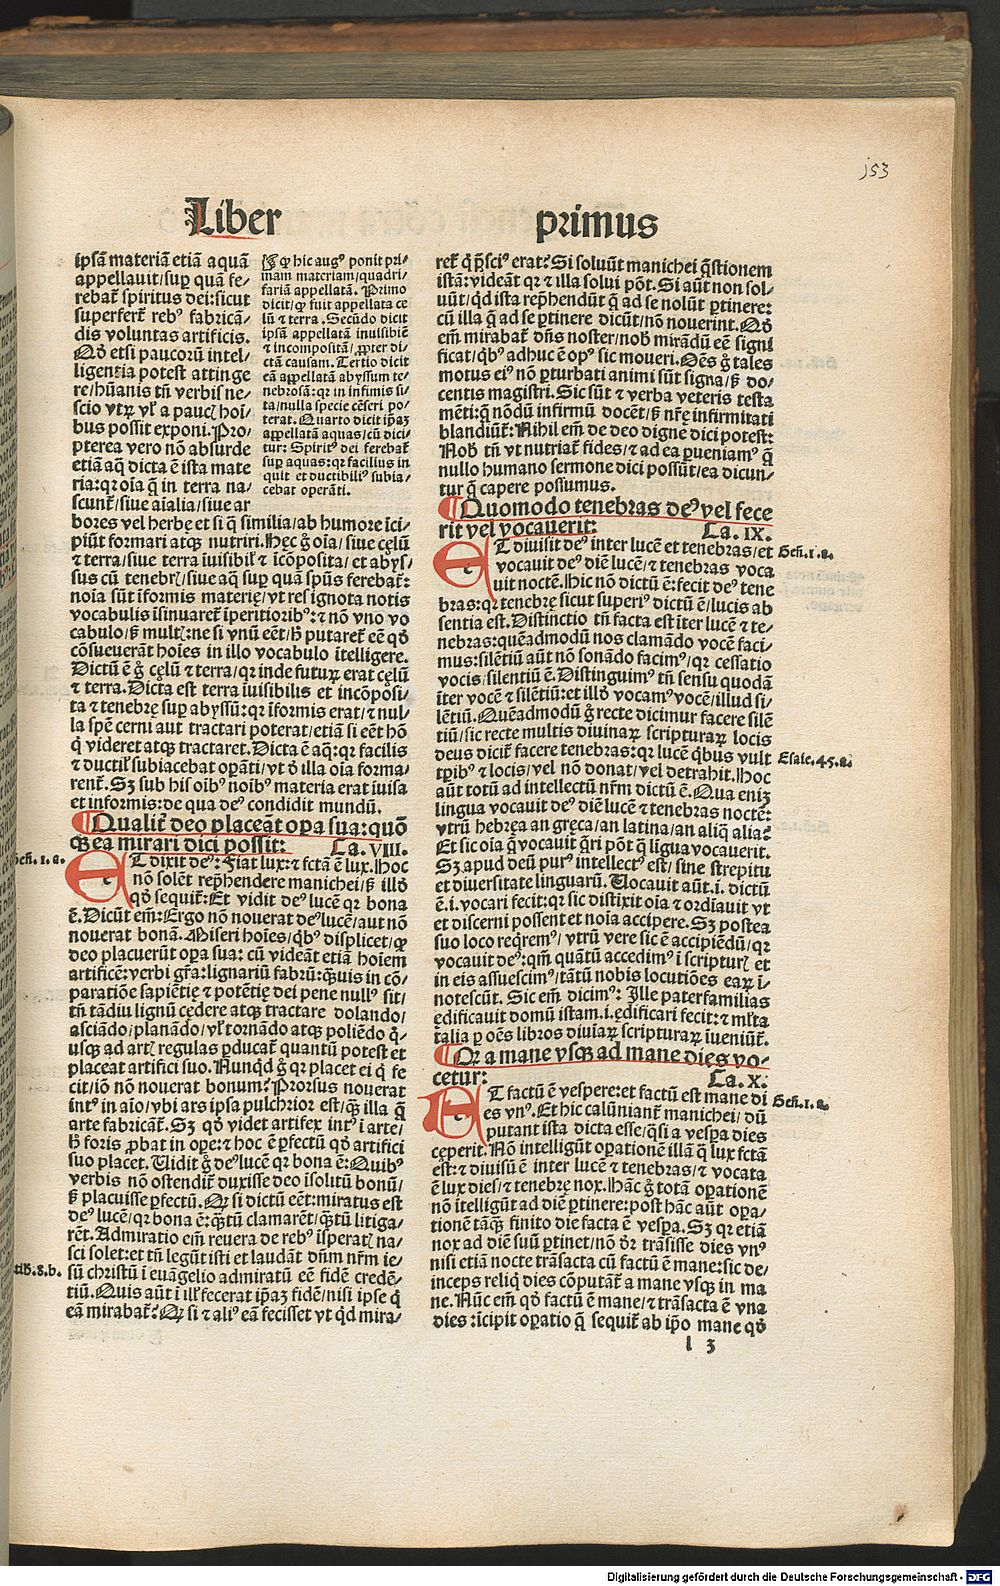 j53
Liber primus
ipsã materiã etiã aquã
appellauit/sup quã fe⸗
rebat spiritus dei:sicut
superfert reb⁹ fabricã⸗
dis voluntas artificis.
Qđ etsi paucorũ intel⸗
ligentia potest attinge
re/hũanis tñ verbis ne⸗
scio vtꝝ vł a paucꝭ hoi⸗
bus possit exponi. Pro⸗
pterea vero nõ absurde
etiã aq̃ dicta ẽ ista mate
ria:qꝛ oĩa q̃ in terra na⸗
scunt/siue aĩalia/siue ar
bores vel herbę et si q̃ similia/ab humore ĩci⸗
piũt formari atqꝫ nutriri. Hec g̊ oĩa/siue cęlũ
⁊ terra/siue terra iuisibil̓ ⁊ ĩcõposita/et abys⸗
sus cũ tenebrꝭ/siue aq̃ sup quã spũs ferebat:
noĩa sũt ĩformis materię/vt res ignota notis
vocabulis ĩsinuaret ĩperitiorib⁹:⁊ nõ vno vo
cabulo/sꝫ multꝭ:ne si vnũ eẽt/h̵ putaret eẽ qđ
cõsueuerãt hoĩes in illo vocabulo ĩtelligere.
Dictũ ẽ g̊ cęlũ ⁊ terra/qꝛ inde futuꝝ erat cęlũ
⁊ terra. Dicta est terra iuisibilis et incõposi⸗
ta ⁊ tenebrę sup abyssũ:qꝛ ĩformis erat/⁊ nul⸗
la spẽ cerni aut tractari poterat/etiã si eẽt hõ
q̇ videret atqꝫ tractaret. Dicta ẽ aq̃:qꝛ facilis
⁊ ductil̓ subiacebat opãti/vt đ illa oĩa forma⸗
rent. Sꝫ sub his oĩb⁹ noĩb⁹ materia erat iuisa
et informis:de qua de⁹ condidit mundũ.
⁋ hic aug⁹ ponit pri⸗
mam materiam/quadri⸗
fariã appellatã. Primo
dicit/ꝙ fuit appellata ce
lũ ⁊ terra. Secũdo dicit
ipsã appellatã inuisibilẽ
⁊ incompositã/ꝓpter di⸗
ctã causam. Tertio dicit
eã appellatã abyssum te⸗
nebrosã:qꝛ in infimis si⸗
ta/nulla specie cẽseri po⸗
terat. Quarto dicit ip̃aꝫ
appellatã aquas/cũ dici⸗
tur: Spirit⁹ dei ferebat
sup aquas:qꝛ facilius in
quit et ductibili⁹ subia⸗
cebat operãti.
¶Qualit̃ deo placeãt oꝑa sua:quõ
qꝫ ea mirari dici possit: Ca. VIII.
Geñ.1.a.
ET dixit de⁹: Fiat lux:⁊ fctã ẽ lux. Hoc
nõ solẽt rep̃hendere manichei/sꝫ illđ
qđ sequit: Et vidit de⁹ lucẽ qꝛ bona
ẽ. Dicũt em̃: Ergo nõ nouerat de⁹ lucẽ/aut nõ
nouerat bonã. Miseri hoĩes/qb⁹ displicet/ꝙ
deo placuerũt oꝑa sua: cũ videãt etiã hoĩem
artificẽ:verbi gr̃a:lignariũ fabrũ:q̃uis in cõ⸗
paratiõe sapiẽtię ⁊ potẽtię dei pene null⁹ sit/
tñ tãdiu lignũ cędere atqꝫ tractare dolando/
asciãdo/planãdo/vł tornãdo atqꝫ poliẽdo q̇⸗
usqꝫ ad artꝭ regulas ꝑducat quantũ potest et
placeat artifici suo. Nunqđ g̊ qꝛ placet ei q̇ fe
cit/iõ nõ nouerat bonum? Prorsus nouerat
int⁹ in aĩo/vbi ars ipsa pulchrior est/q̃ꝫ illa q̃
arte fabricat. Sꝫ qđ videt artifex int⁹ i arte/
h̵ foris ꝓbat in oꝑe:⁊ hoc ẽ ꝑfectũ qđ artifici
suo placet. Uidit g̊ de⁹ lucẽ qꝛ bona ẽ: Quib⁹
verbis nõ ostendit̃ duxisse deo isolitũ bonũ/
sꝫ placuisse ꝑfectũ. Qꝛ si dictũ eẽt:miratus est
de⁹ lucẽ/qꝛ bona ẽ:q̃tũ clamarẽt/q̃tũ litiga⸗
rẽt. Admiratio em̃ reuera de reb⁹ isperatꝭ na⸗
sci solet:et tñ legũt isti et laudãt dñm nr̃m ie⸗
sũ christũ i euãgelio admiratũ eẽ fidẽ credẽ⸗
tiũ. Quis aũt i ill̓ fecerat ip̃aꝫ fidẽ/nisi ipse q̇
eã mirabat? Qꝛ si ⁊ ali⁹ eã fecisset vt qđ mira⸗
Mt̃h.8.b.
ret̃ q̇ p̃sci⁹ erat? Si soluũt manichei q̃stionem
istã:videãt qꝛ ⁊ illa solui põt. Si aũt non sol⸗
uũt/qđ ista rep̃hendũt q̃ ad se nolũt ꝑtinere:
cũ illa q̃ ad se ꝑtinere dicũt/nõ nouerint. Qđ
em̃ mirabat dñs noster/nob̓ mirãdũ eẽ signi
ficat/qb⁹ adhuc ẽ op⁹ sic moueri. Oẽs g̊ tales
motus ei⁹ nõ ꝑturbati animi sũt signa/sꝫ do⸗
centis magistri. Sic sũt ⁊ verba veteris testa
mẽti:q̃ nõdũ infirmũ docẽt/sꝫ nr̃ę infirmitati
blandiũt: Nihil em̃ de deo digne dici potest:
Nob̓ tñ vt nutriat fides/⁊ ad ea ꝑueniam⁹ q̃
nullo humano sermone dici possũt/ea dicun⸗
tur q̃ capere possumus.
¶Quomodo tenebras de⁹ vel fece
rit vel vocauerit: Ca. IX.
ET diuisit de⁹ inter lucẽ et tenebras/et
vocauit de⁹ diẽ lucẽ/⁊ tenebras voca
uit noctẽ. Hic nõ dictũ ẽ:fecit de⁹ tene
Geñ.1.a.
bras:qꝛ tenebrę sicut superi⁹ dictũ ẽ/lucis ab
sentia est. Distinctio tñ facta est ĩter lucẽ ⁊ te⸗
nebras:quẽadmodũ nos clamãdo vocẽ faci⸗
mus:silẽtiũ aũt nõ sonãdo facim⁹/qꝛ cessatio
vocis/silentiũ ẽ. Distinguim⁹ tñ sensu quodã
ĩter vocẽ ⁊ silẽtiũ:et illđ vocam⁹ vocẽ/illud si⸗
lẽtiũ. Quẽadmodũ g̊ recte dicimur facere silẽ
tiũ/sic recte multis diuinaꝝ scripturaꝝ locis
deus dicit facere tenebras:qꝛ lucẽ qbus vult
Esaie.45.a.
tp̃ib⁹ ⁊ locis/vel nõ donat/vel detrahit. Hoc
aũt totũ ad intellectũ nr̃m dictũ ẽ. Qua enĩꝫ
lingua vocauit de⁹ diẽ lucẽ ⁊ tenebras noctẽ:
vtrũ hebręa an gręca/an latina/an aliq̃ alia?
Et sic oĩa q̃ vocauit q̃ri põt q̃ lĩgua vocauerit.
Sꝫ apud deũ pur⁹ intellect⁹ est/ sine strepitu
et diuersitate linguarũ. Uocauit aũt.i.dictũ
ẽ.i.vocari fecit:qꝛ sic distĩxit oĩa ⁊ ordĩauit vt
et discerni possent et noĩa accipere. Sꝫ postea
suo loco req̇rem⁹/vtrũ vere sic ẽ accipiẽdũ/qꝛ
vocauit de⁹:qm̃ quãtũ accedim⁹ i scripturꝭ et
in eis assuescim⁹/tãtũ nobis locutiões eaꝝ i⸗
notescũt. Sic em̃ dicim⁹: Ille paterfamilias
ędificauit domũ istam.i.ędificari fecit:⁊ ml̃ta
talia p oẽs libros diuiaꝝ scripturaꝝ iueniũt.
¶Qꝛ a mane vsqꝫ ad mane dies vo⸗
cetur: Ca. X.
ET factũ ẽ vespere:et factũ est mane di
es vn⁹. Et hic calũniant manichei/dũ
Geñ.1.a.
putant ista dicta esse/q̃si a vespa dies
cęperit. Nõ intelligũt oꝑationẽ illã q̃ lux fctã
est:⁊ diuisũ ẽ inter lucẽ ⁊ tenebras/⁊ vocata
ẽ lux dies/⁊ tenebrę nox. Hãc g̊ totã oꝑationẽ
nõ ĩtelligũt ad diẽ ꝑtinere:post hãc aũt oꝑa⸗
tionẽ tãqꝫ finito die facta ẽ vespa. Sꝫ qꝛ etiã
nox ad diẽ suũ ꝑtinet/nõ đr trãsisse dies vn⁹
nisi etiã nocte trãsacta cũ factũ ẽ mane:sic de⸗
inceps reliq̇ dies cõputãt a mane vsqꝫ in ma
ne. Nũc em̃ qđ factũ ẽ mane/⁊ trãsacta ẽ vna
dies:ĩcipit oꝑatio q̃ sequit ab ip̃o mane qđ
l 3
Digitalisierung gefördert durch die Deutsche Forschungsgemeinschaft - DFG